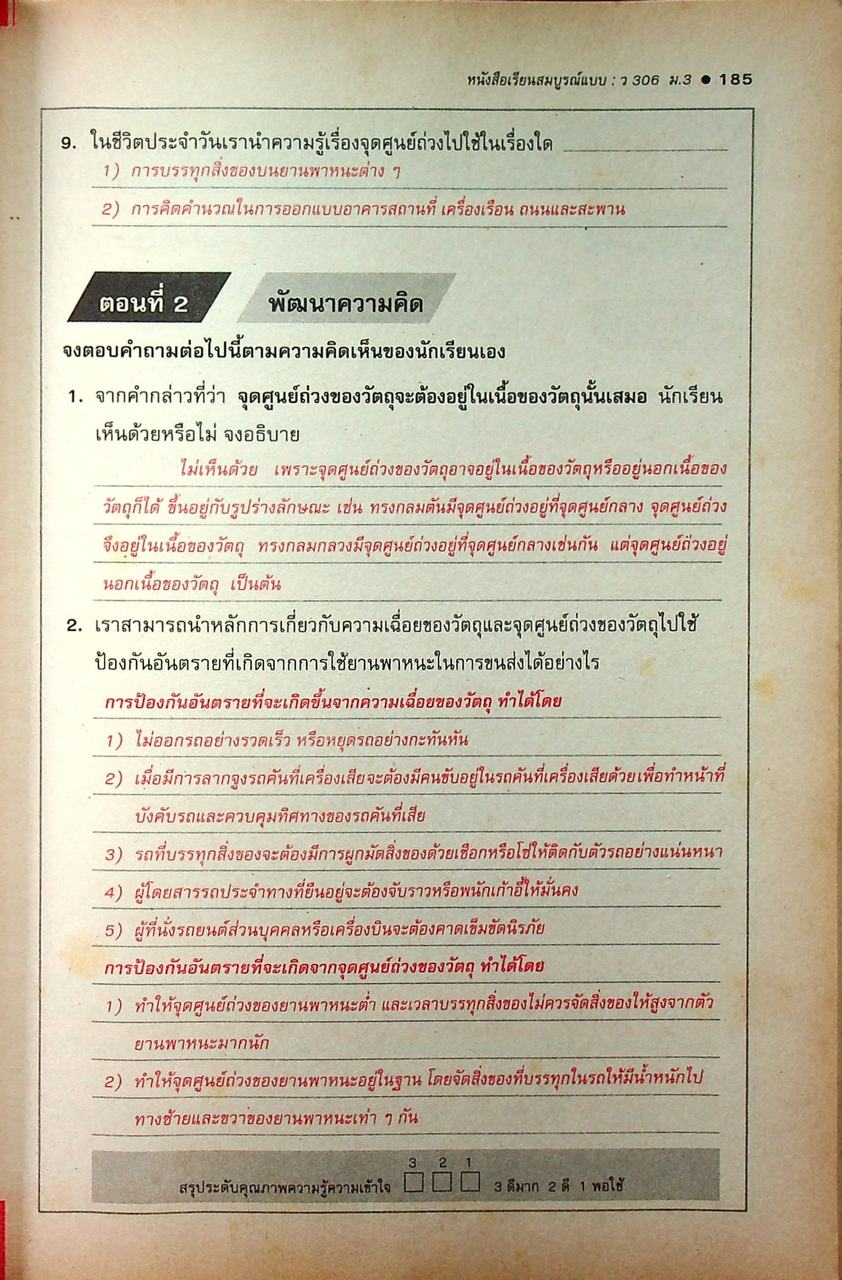 หนังสือเรียนสมบูรณ์แบบ : ว 306 ม.3 ● 185
9. ในชีวิตประจำวันเรานำความรู้เรื่องจุดศูนย์ถ่วงไปใช้ในเรื่องใด
1) การบรรทุกสิ่งของบนยานพาหนะต่าง ๆ
2) การคิดคำนวณในการออกแบบอาคารสถานที่ เครื่องเรือน ถนนและสะพาน
ตอนที่ 2 พัฒนาความคิด
จงตอบคำถามต่อไปนี้ตามความคิดเห็นของนักเรียนเอง
1. จากคำกล่าวที่ว่า จุดศูนย์ถ่วงของวัตถุจะต้องอยู่ในเนื้อของวัตถุนั้นเสมอ นักเรียน
เห็นด้วยหรือไม่ จงอธิบาย
ไม่เห็นด้วย เพราะจุดศูนย์ถ่วงของวัตถุอาจอยู่ในเนื้อของวัตถุหรืออยู่นอกเนื้อของ
วัตถุก็ได้ ขึ้นอยู่กับรูปร่างลักษณะ เช่น ทรงกลมตันมีจุดศูนย์ถ่วงอยู่ที่จุดศูนย์กลาง จุดศูนย์ถ่วง
จึงอยู่ในเนื้อของวัตถุ ทรงกลมกลวงมีจุดศูนย์ถ่วงอยู่ที่จุดศูนย์กลางเช่นกัน แต่จุดศูนย์ถ่วงอยู่
นอกเนื้อของวัตถุ เป็นต้น
2. เราสามารถนำหลักการเกี่ยวกับความเฉื่อยของวัตถุและจุดศูนย์ถ่วงของวัตถุไปใช้
ป้องกันอันตรายที่เกิดจากการใช้ยานพาหนะในการขนส่งได้อย่างไร
การป้องกันอันตรายที่จะเกิดขึ้นจากความเฉื่อยของวัตถุ ทำได้โดย
1) ไม่ออกรถอย่างรวดเร็ว หรือหยุดรถอย่างกะทันหัน
2) เมื่อมีการลากจูงรถคันที่เครื่องเสียจะต้องมีคนขับอยู่ในรถคันที่เครื่องเสียด้วยเพื่อทำหน้าที่
บังคับรถและควบคุมทิศทางของรถคันที่เสีย
3) รถที่บรรทุกสิ่งของจะต้องมีการผูกมัดสิ่งของด้วยเชือกหรือโซ่ให้ติดกับตัวรถอย่างแน่นหนา
4) ผู้โดยสารรถประจำทางที่ยืนอยู่จะต้องจับราวหรือพนักเก้าอี้ให้มั่นคง
5) ผู้ที่นั่งรถยนต์ส่วนบุคคลหรือเครื่องบินจะต้องคาดเข็มขัดนิรภัย
การป้องกันอันตรายที่จะเกิดจากจุดศูนย์ถ่วงของวัตถุ ทำได้โดย
1) ทำให้จุดศูนย์ถ่วงของยานพาหนะต่ำ และเวลาบรรทุกสิ่งของไม่ควรจัดสิ่งของให้สูงจากตัว
ยานพาหนะมากนัก
2) ทำให้จุดศูนย์ถ่วงของยานพาหนะอยู่ในฐาน โดยจัดสิ่งของที่บรรทุกในรถให้มีน้ำหนักไป
ทางซ้ายและขวาของยานพาหนะเท่า ๆ กัน
3 2 1
สรุประดับคุณภาพความรู้ความเข้าใจ □ □ □ 3 ดีมาก 2 ดี 1 พอใช้